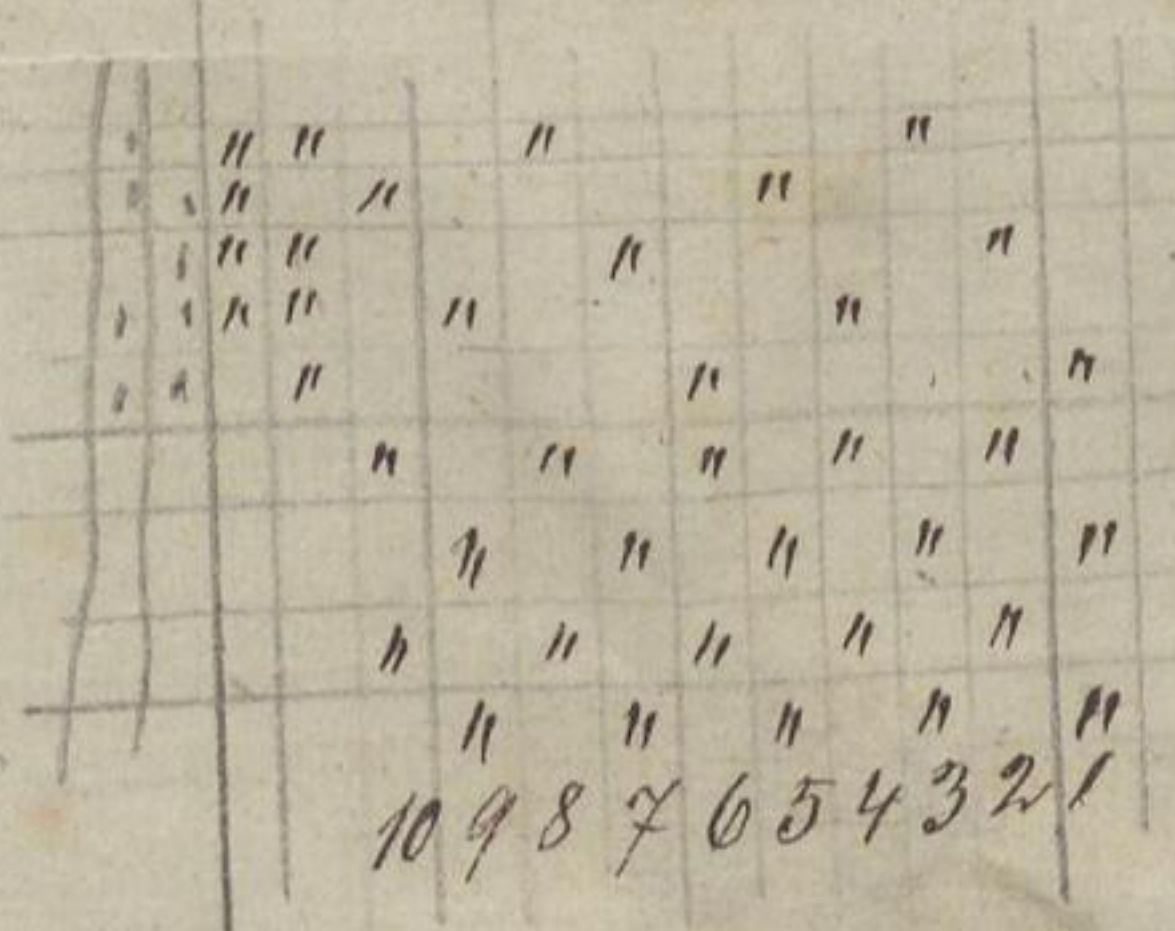 " " " "
" " "
" " " "
" " " "
" " "
" " " " "
" " " " "
" " " " "
" " " " "
10 9 8 7 6 5 4 3 2 1